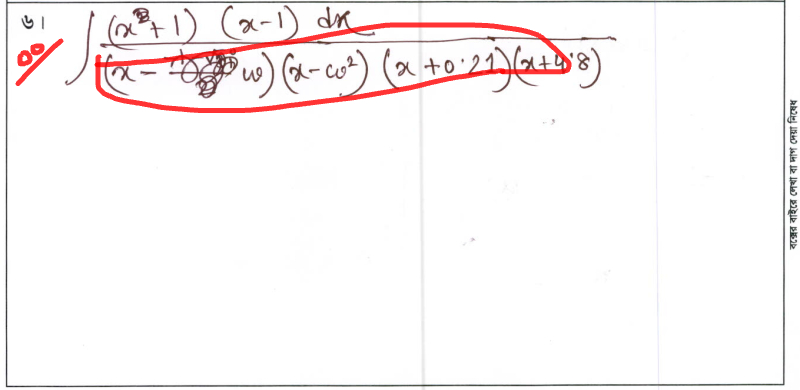 ৬।
00
∫ (x²+1) (x-1) dx
(x - ω) (x-ω²) (x+0.21) (x+4.8)
বক্সের বাইরে লেখা বা দাগ দেয়া নিষেধ